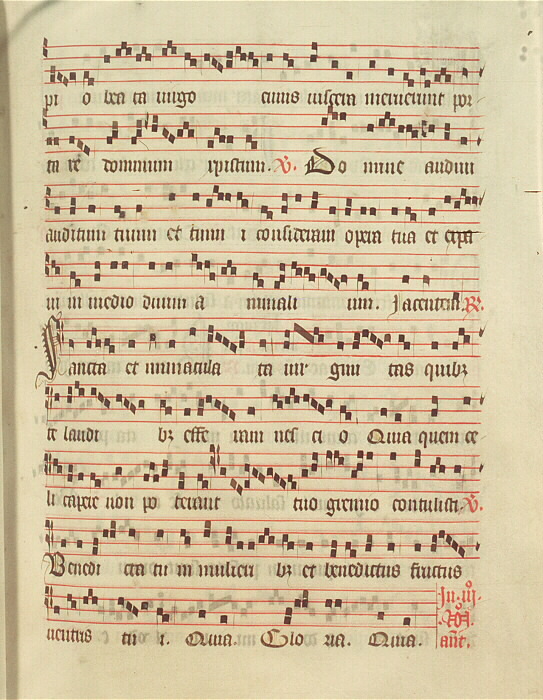 pi o bea ta uirgo cuius uiscera meruerunt por
ta re dominum xpistum. V. Do mine audiui
auditum tuum et timu i consideraui opera tua et expa
ui in medio duum a nimali um. Jacentem. R.
Sancta et inmacula ta uir gini tas quibz
te laudi bz effe ram nes ci o Quia quem ce
li capere non po terant tuo gremio contulisti. V.
Benedi cta tu in mulieri bz et benedictus fructus
uentris tu i. Quia. Glo ria. Quia.
In. iij.
ant.